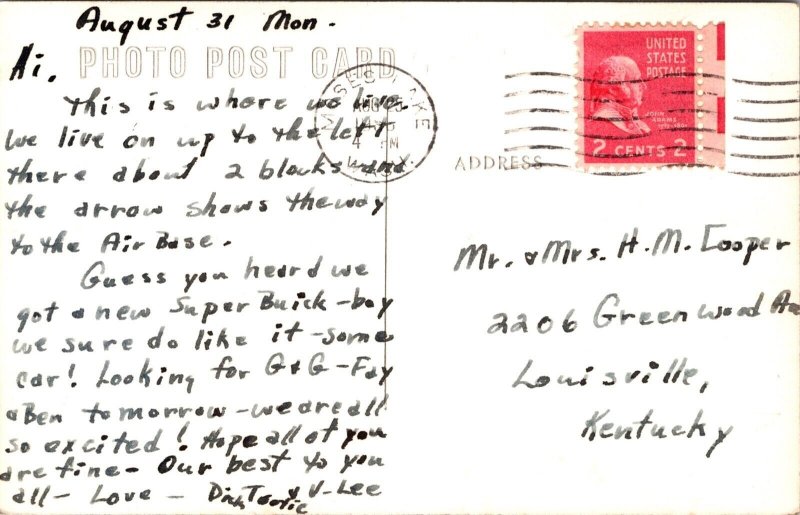 August 31 Mon.
PHOTO POST CARD
Hi,
This is where we live.
We live on up to the left
there about 2 blocks and
the arrow shows the way
to the Air Base.
Guess you heard we
got a new Super Buick - boy
we sure do like it - some
car! Looking for G & G - Fay
& Ben tomorrow - we are all
so excited! Hope all of you
are fine - Our best to you
all - Love - Dick & V-Lee
MOSES LAKE
4 PM
WASH.
UNITED
STATES
POSTAGE
JOHN
ADAMS
2 CENTS 2
ADDRESS
Mr. & Mrs. H. M. Cooper
2206 Greenwood Ave
Louisville,
Kentucky